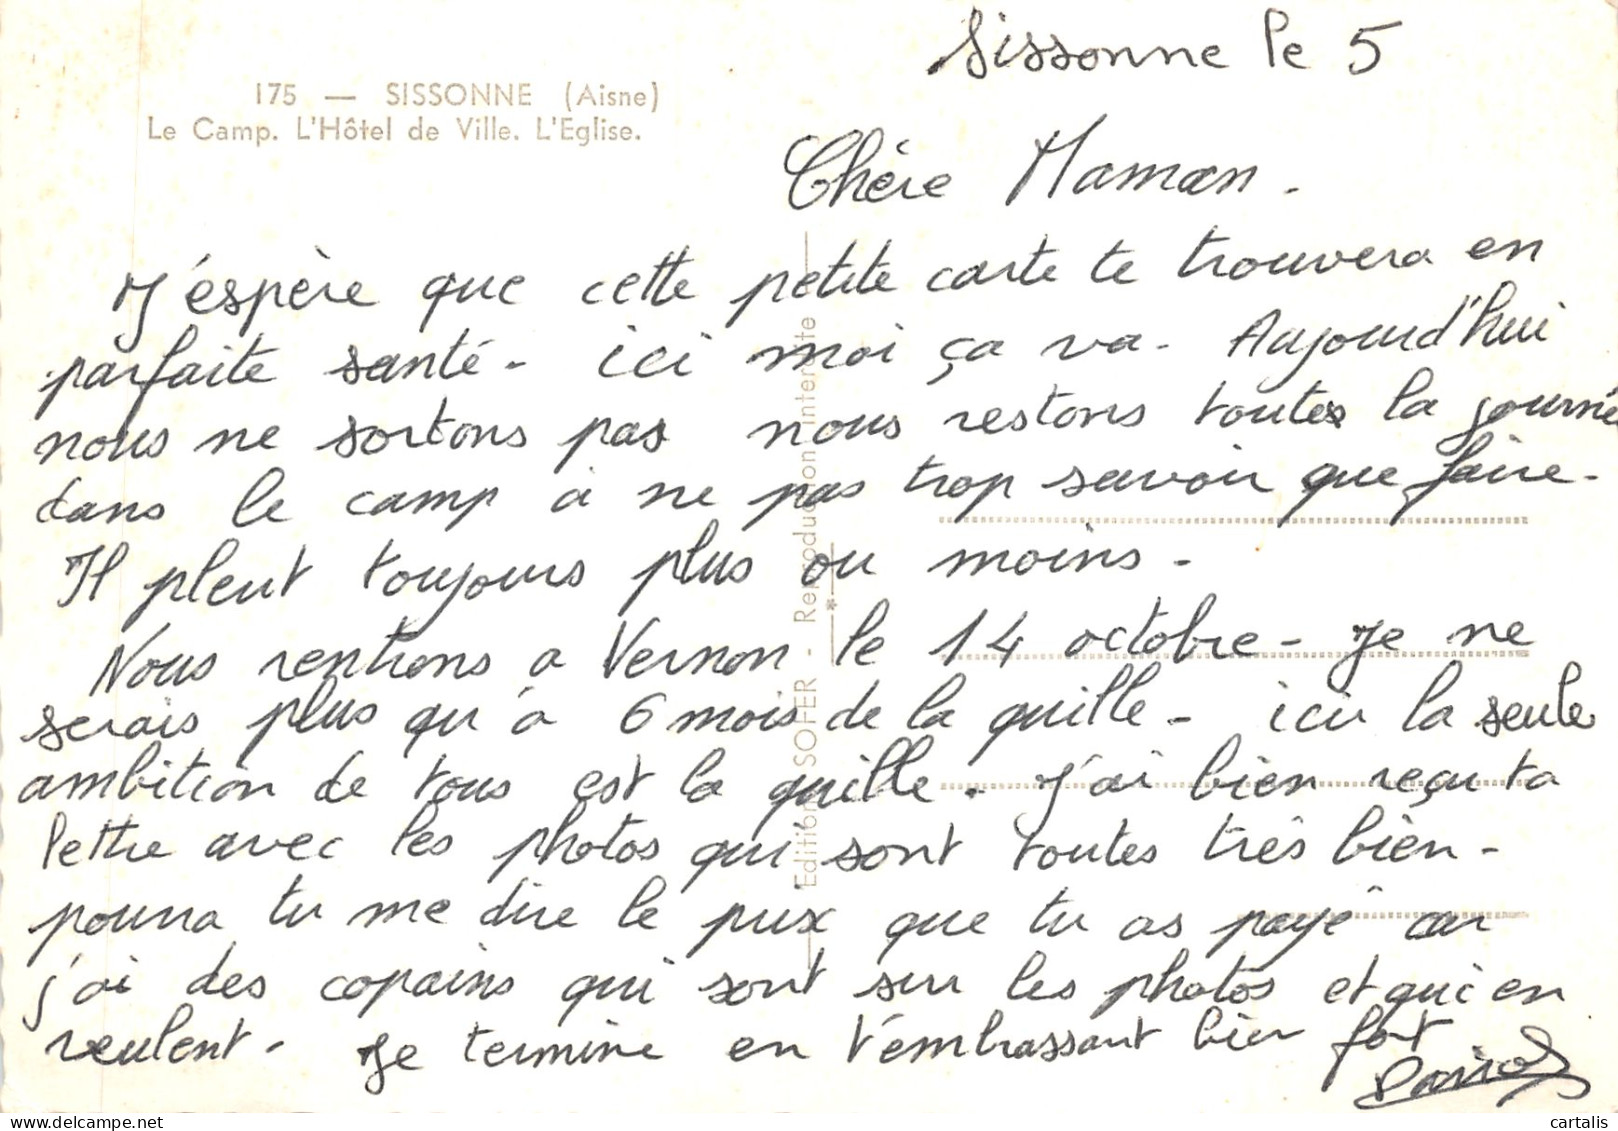 Sissonne le 5
175 — SISSONNE (Aisne)
Le Camp. L'Hôtel de Ville. L'Eglise.
Chère Maman.
J'éspère que cette petite carte te trouvera en
parfaite santé - ici moi ça va - Aujourd'hui
nous ne sortons pas nous restons toutes la journé
dans le camp a ne pas trop savoir que faire -
Il pleut toujours plus ou moins -
Nous rentrons a Vernon le 14 octobre - Je ne
serais plus qu'a 6 mois de la quille - ici la seule
ambition de tous est la quille. J'ai bien reçu ta
lettre avec les photos qui sont toutes très bien -
pourra tu me dire le prix que tu as payé car
j'ai des copains qui sont sur les photos et qui en
veulent - Je termine en t'embrassant bien fort
Edition SOFER - Reproduction interdite
cartalis